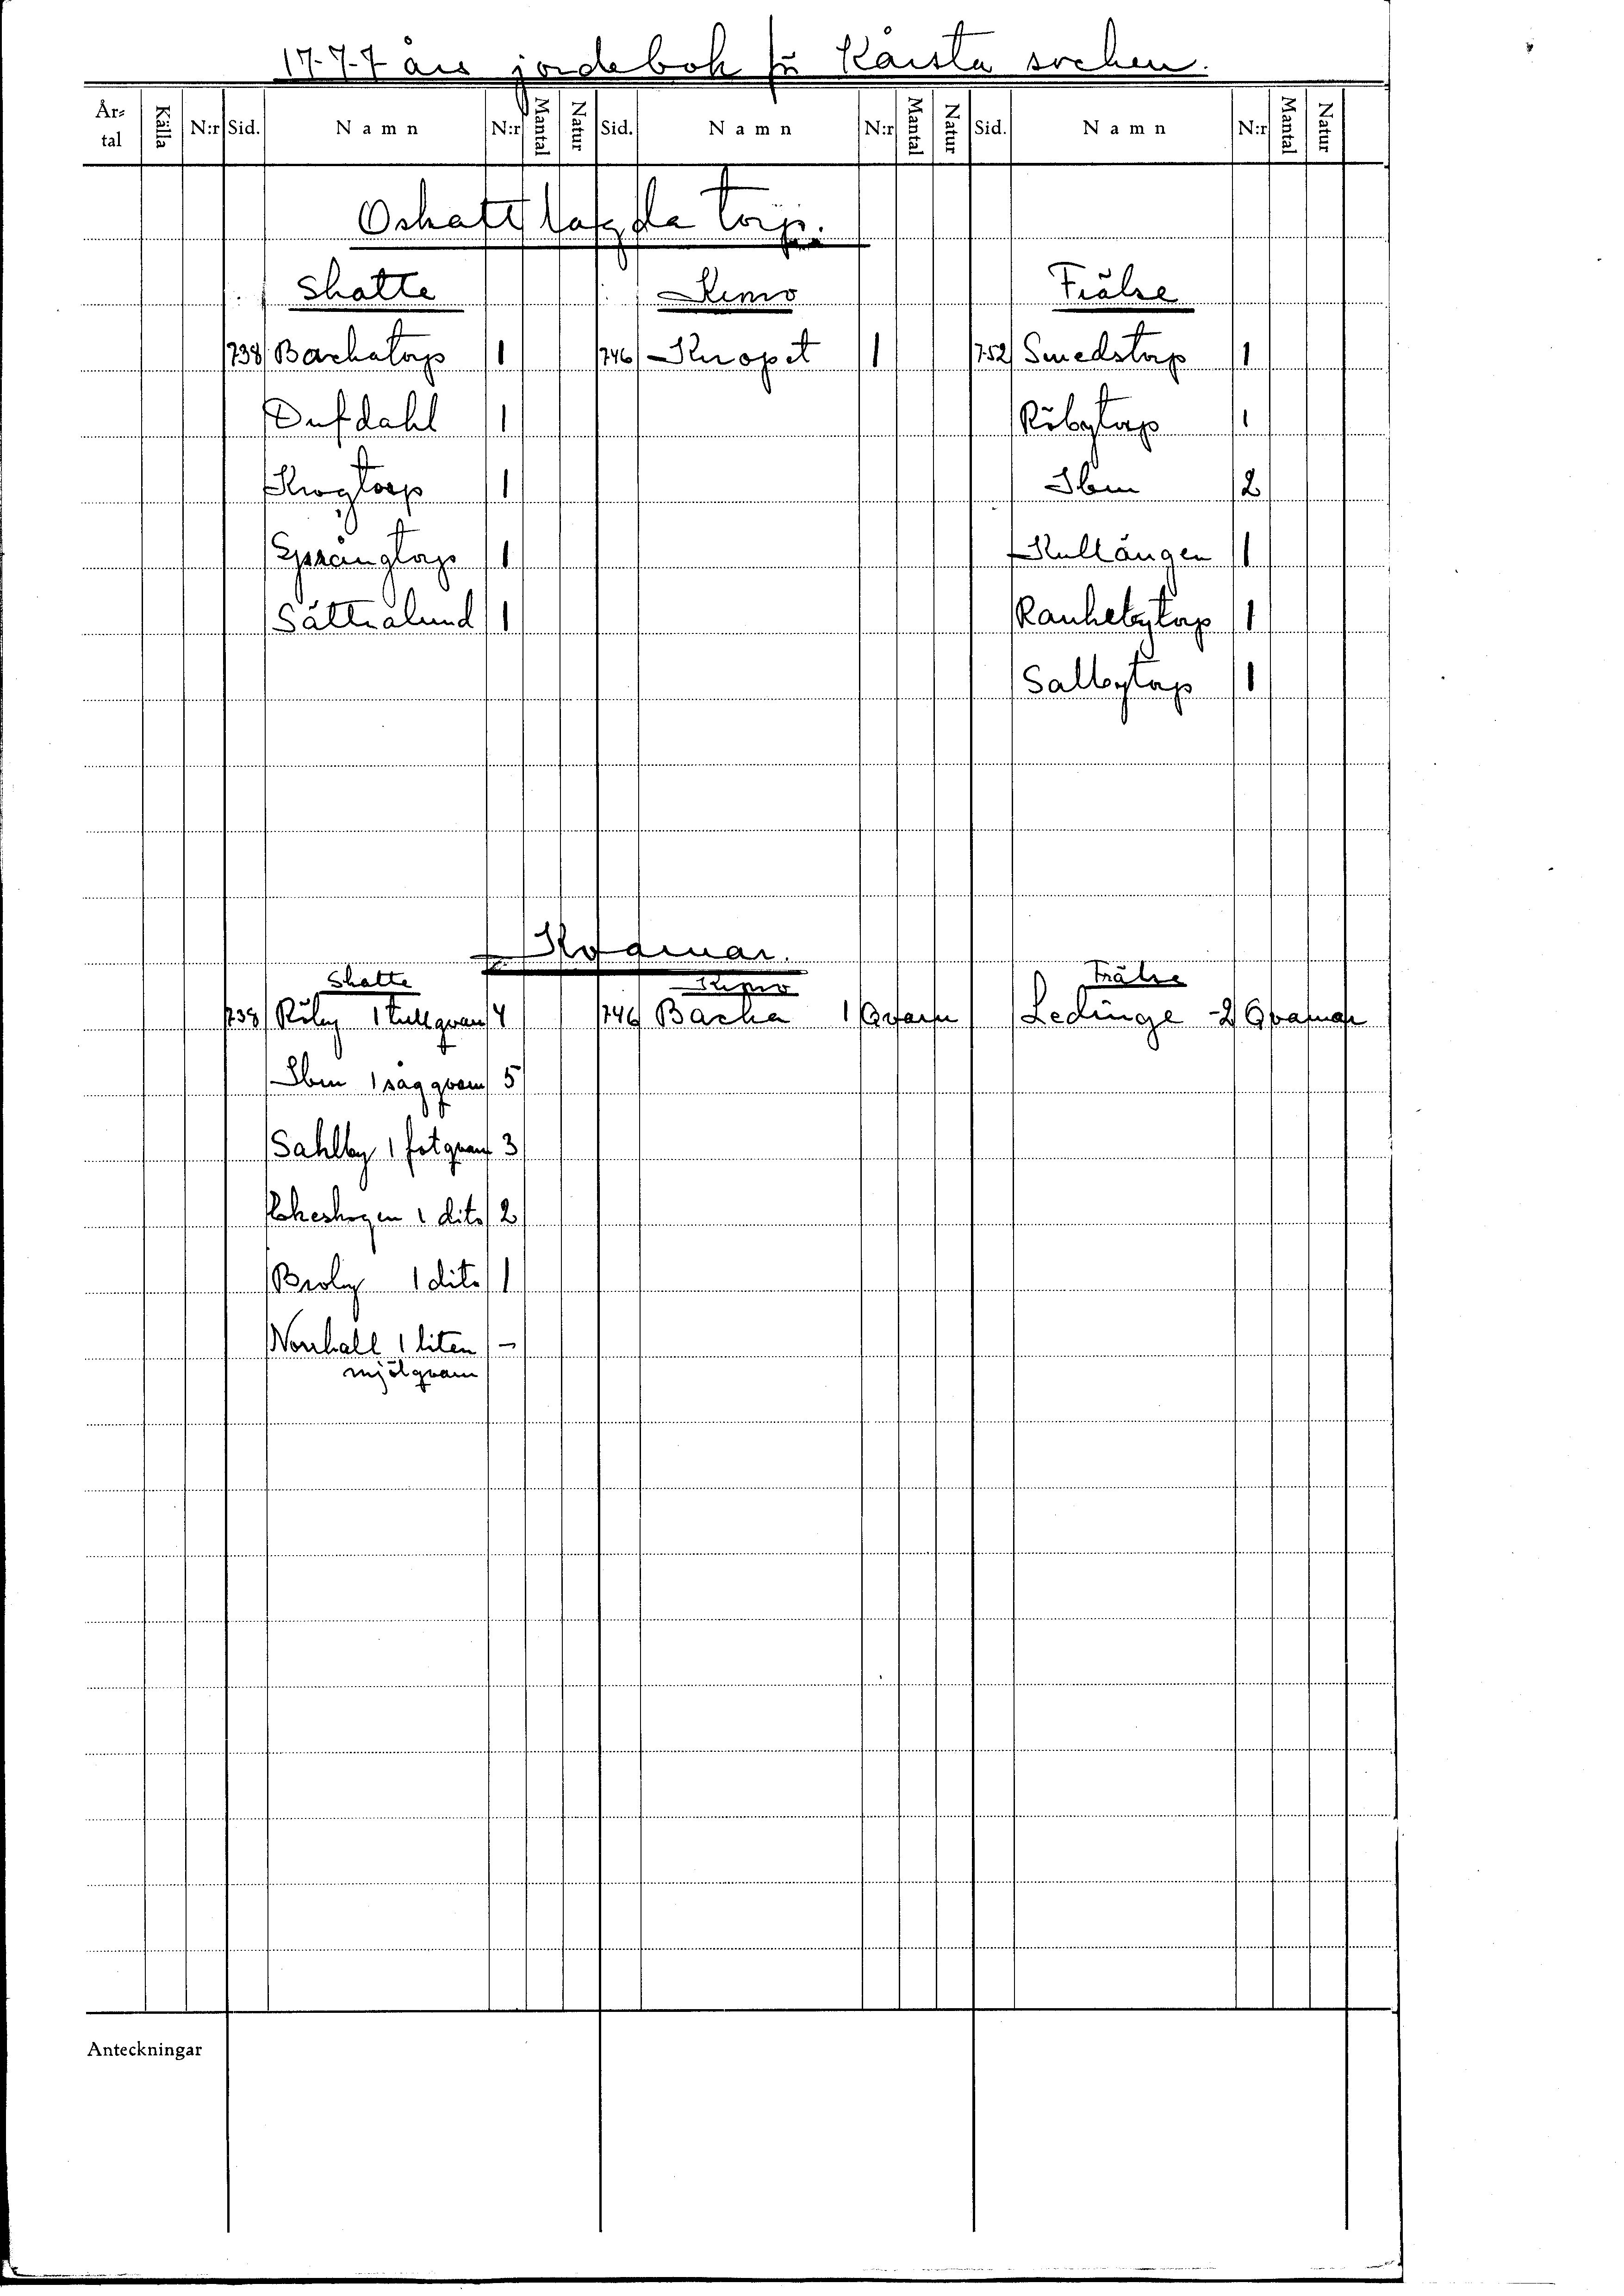 1777 års jordebok för Kårsta socken.
År- tal Källa N:r Sid. Namn N:r Mantal Natur Sid. Namn N:r Mantal Natur Sid. Namn N:r Mantal Natur
Oskattlagda torp.
Skatte Krono Frälse
738 Backatorp 1 746 Knopet 1 752 Smedstorp 1
Dufdahl 1 Röbytorp 1
Krogtorp 1 Ibm 2
Språngtorp 1 Kullängen 1
Sättralund 1 Rankebytorp 1
Salbytorp 1
Kvarnar.
Skatte Krono Frälse
738 Röby 1 tullqvarn 4 746 Backa 1 Qvarn Ledinge -2 Qvarnar
Ibm 1 sågqvarn 5
Sahlby 1 fotqvarn 3
1 dito 2
Broby 1 dito 1
Norrhall 1 liten -
mjölqvarn
Anteckningar